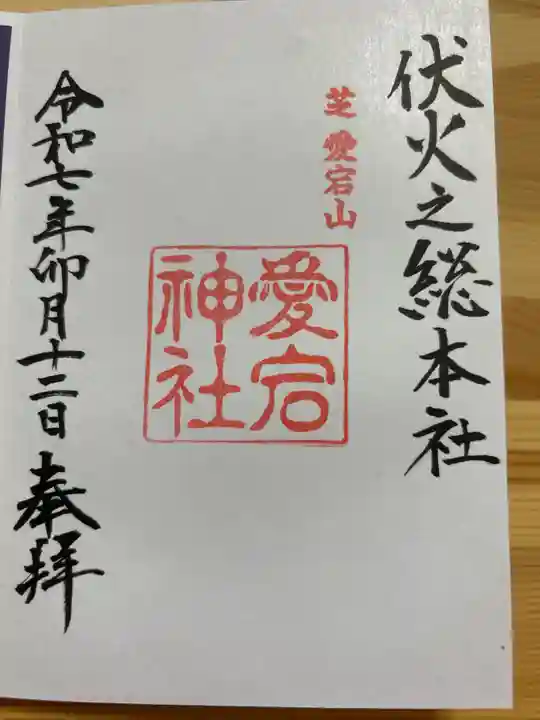 伏火之総本社
芝愛宕山
愛宕
神社
令和七年卯月十二日奉拝